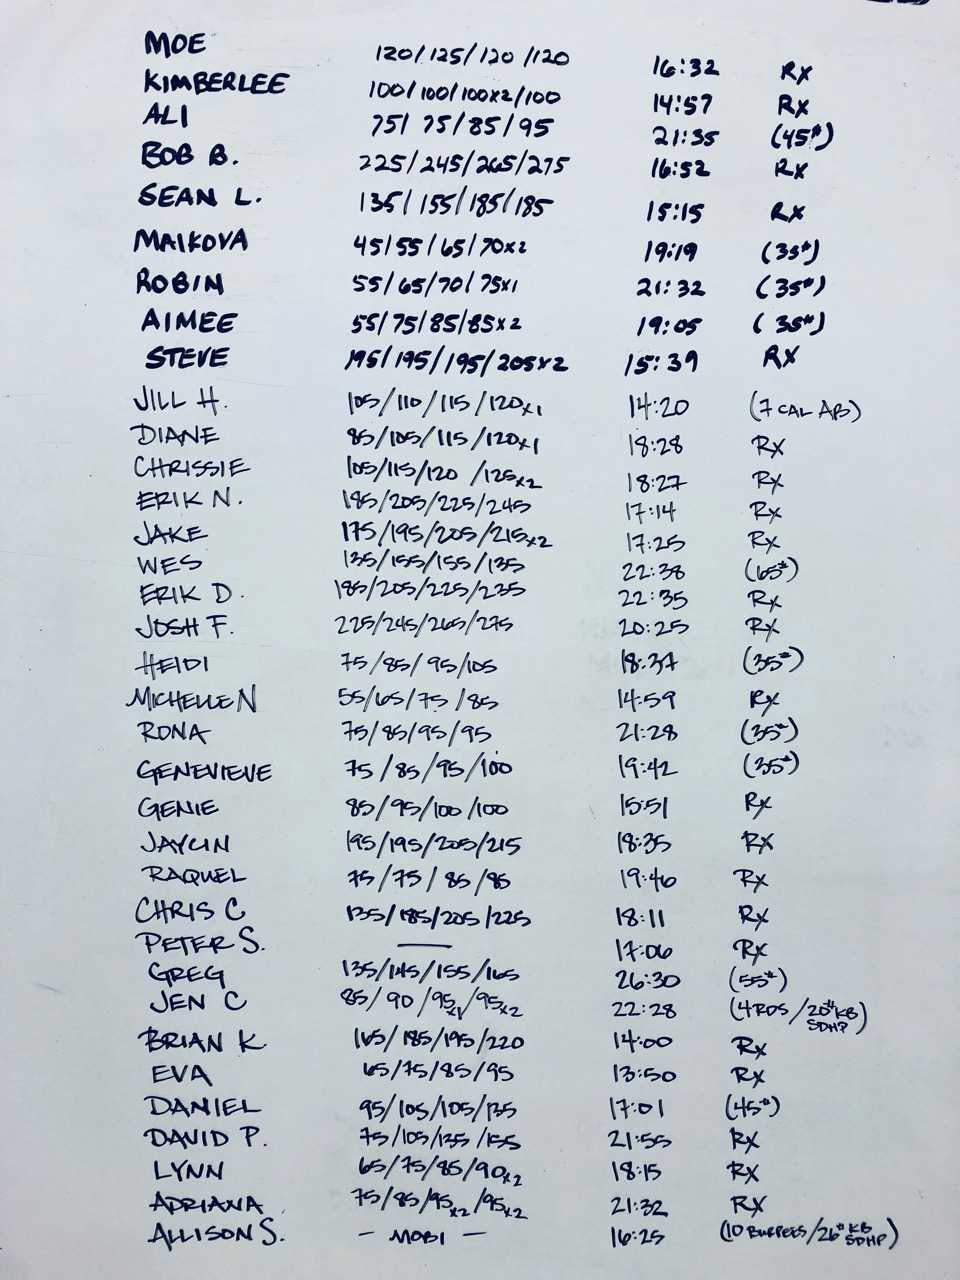 MOE 120/125/120/120 16:32 RX
KIMBERLEE 100/100/100x2/100 14:57 RX
ALI 75/75/85/95 21:35 (45#)
BOB B. 225/245/265/275 16:52 RX
SEAN L. 135/155/185/185 15:15 RX
MAIKOVA 45/55/65/70x2 19:19 (35#)
ROBIN 55/65/70/75x1 21:32 (35#)
AIMEE 55/75/85/85x2 19:05 (35#)
STEVE 195/195/195/205x2 15:39 RX
JILL H. 105/110/115/120x1 14:20 (7 CAL AB)
DIANE 85/105/115/120x1 18:28 RX
CHRISSIE 105/115/120/125x2 18:27 RX
ERIK N. 185/205/225/245 17:14 RX
JAKE 175/195/205/215x2 17:25 RX
WES 135/155/155/135 22:38 (65#)
ERIK D. 185/205/225/235 22:35 RX
JOSH F. 225/245/265/275 20:25 RX
HEIDI 75/85/95/105 18:37 (35#)
MICHELLE N 55/65/75/85 14:59 RX
RONA 75/85/95/95 21:28 (35#)
GENEVIEVE 75/85/95/100 19:42 (35#)
GENIE 85/95/100/100 15:51 RX
JAYLIN 195/195/205/215 18:35 RX
RAQUEL 75/75/85/85 19:46 RX
CHRIS C 135/185/205/225 18:11 RX
PETER S. — 17:06 RX
GREG 135/145/155/165 26:30 (55#)
JEN C 85/90/95x1/95x2 22:28 (4 RDS/20# KB SDHP)
BRIAN K 165/185/195/220 14:00 RX
EVA 65/75/85/95 13:50 RX
DANIEL 95/105/105/135 17:01 (45#)
DAVID P. 75/105/135/155 21:55 RX
LYNN 65/75/85/90x2 18:15 RX
ADRIANA 75/85/95x2/95x2 21:32 RX
ALLISON S. - MOBI - 16:25 (10 BURPEES/26# KB SDHP)